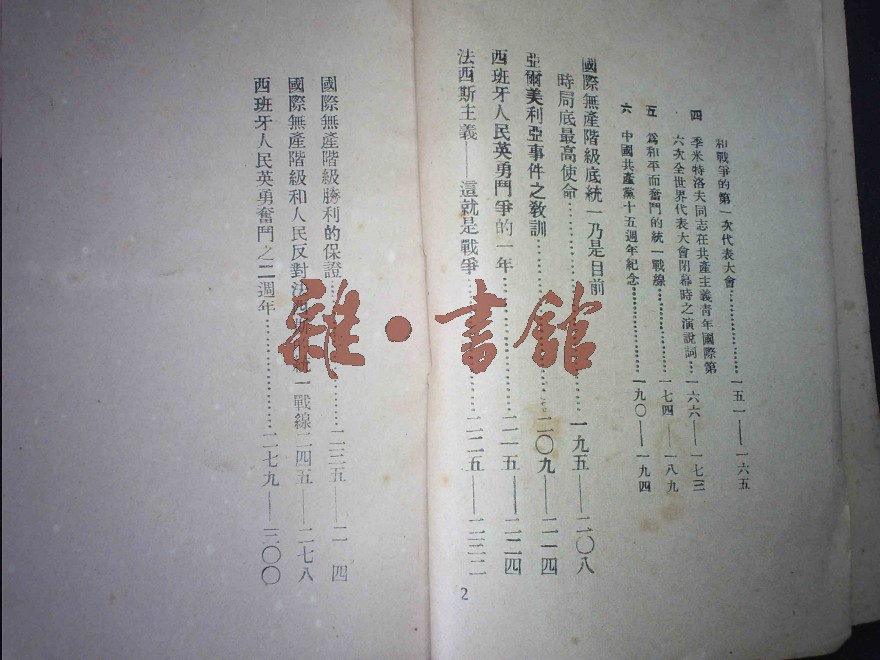 和戰爭的第一次代表大會…………一五一——一六五
四 季米特洛夫同志在共產主義青年國際第
六次全世界代表大會閉幕時之演說詞…一六六——一七三
五 爲和平而奮鬥的統一戰線…………一七四——一八九
六 中國共產黨十五週年紀念…………一九〇——一九四
國際無產階級底統一乃是目前
時局底最高使命…………一九五——二〇八
亞爾美利亞事件之教訓…………二〇九——二一四
西班牙人民英勇鬥爭的一年…………二一五——二二四
法西斯主義——這就是戰爭…………二二五——二三二
2
國際無產階級勝利的保證…………二三五——二 四
國際無產階級和人民反對法西斯 統一戰線二四五——二七八
西班牙人民英勇奮鬥之二週年…………二七九——三〇〇
雜·書館